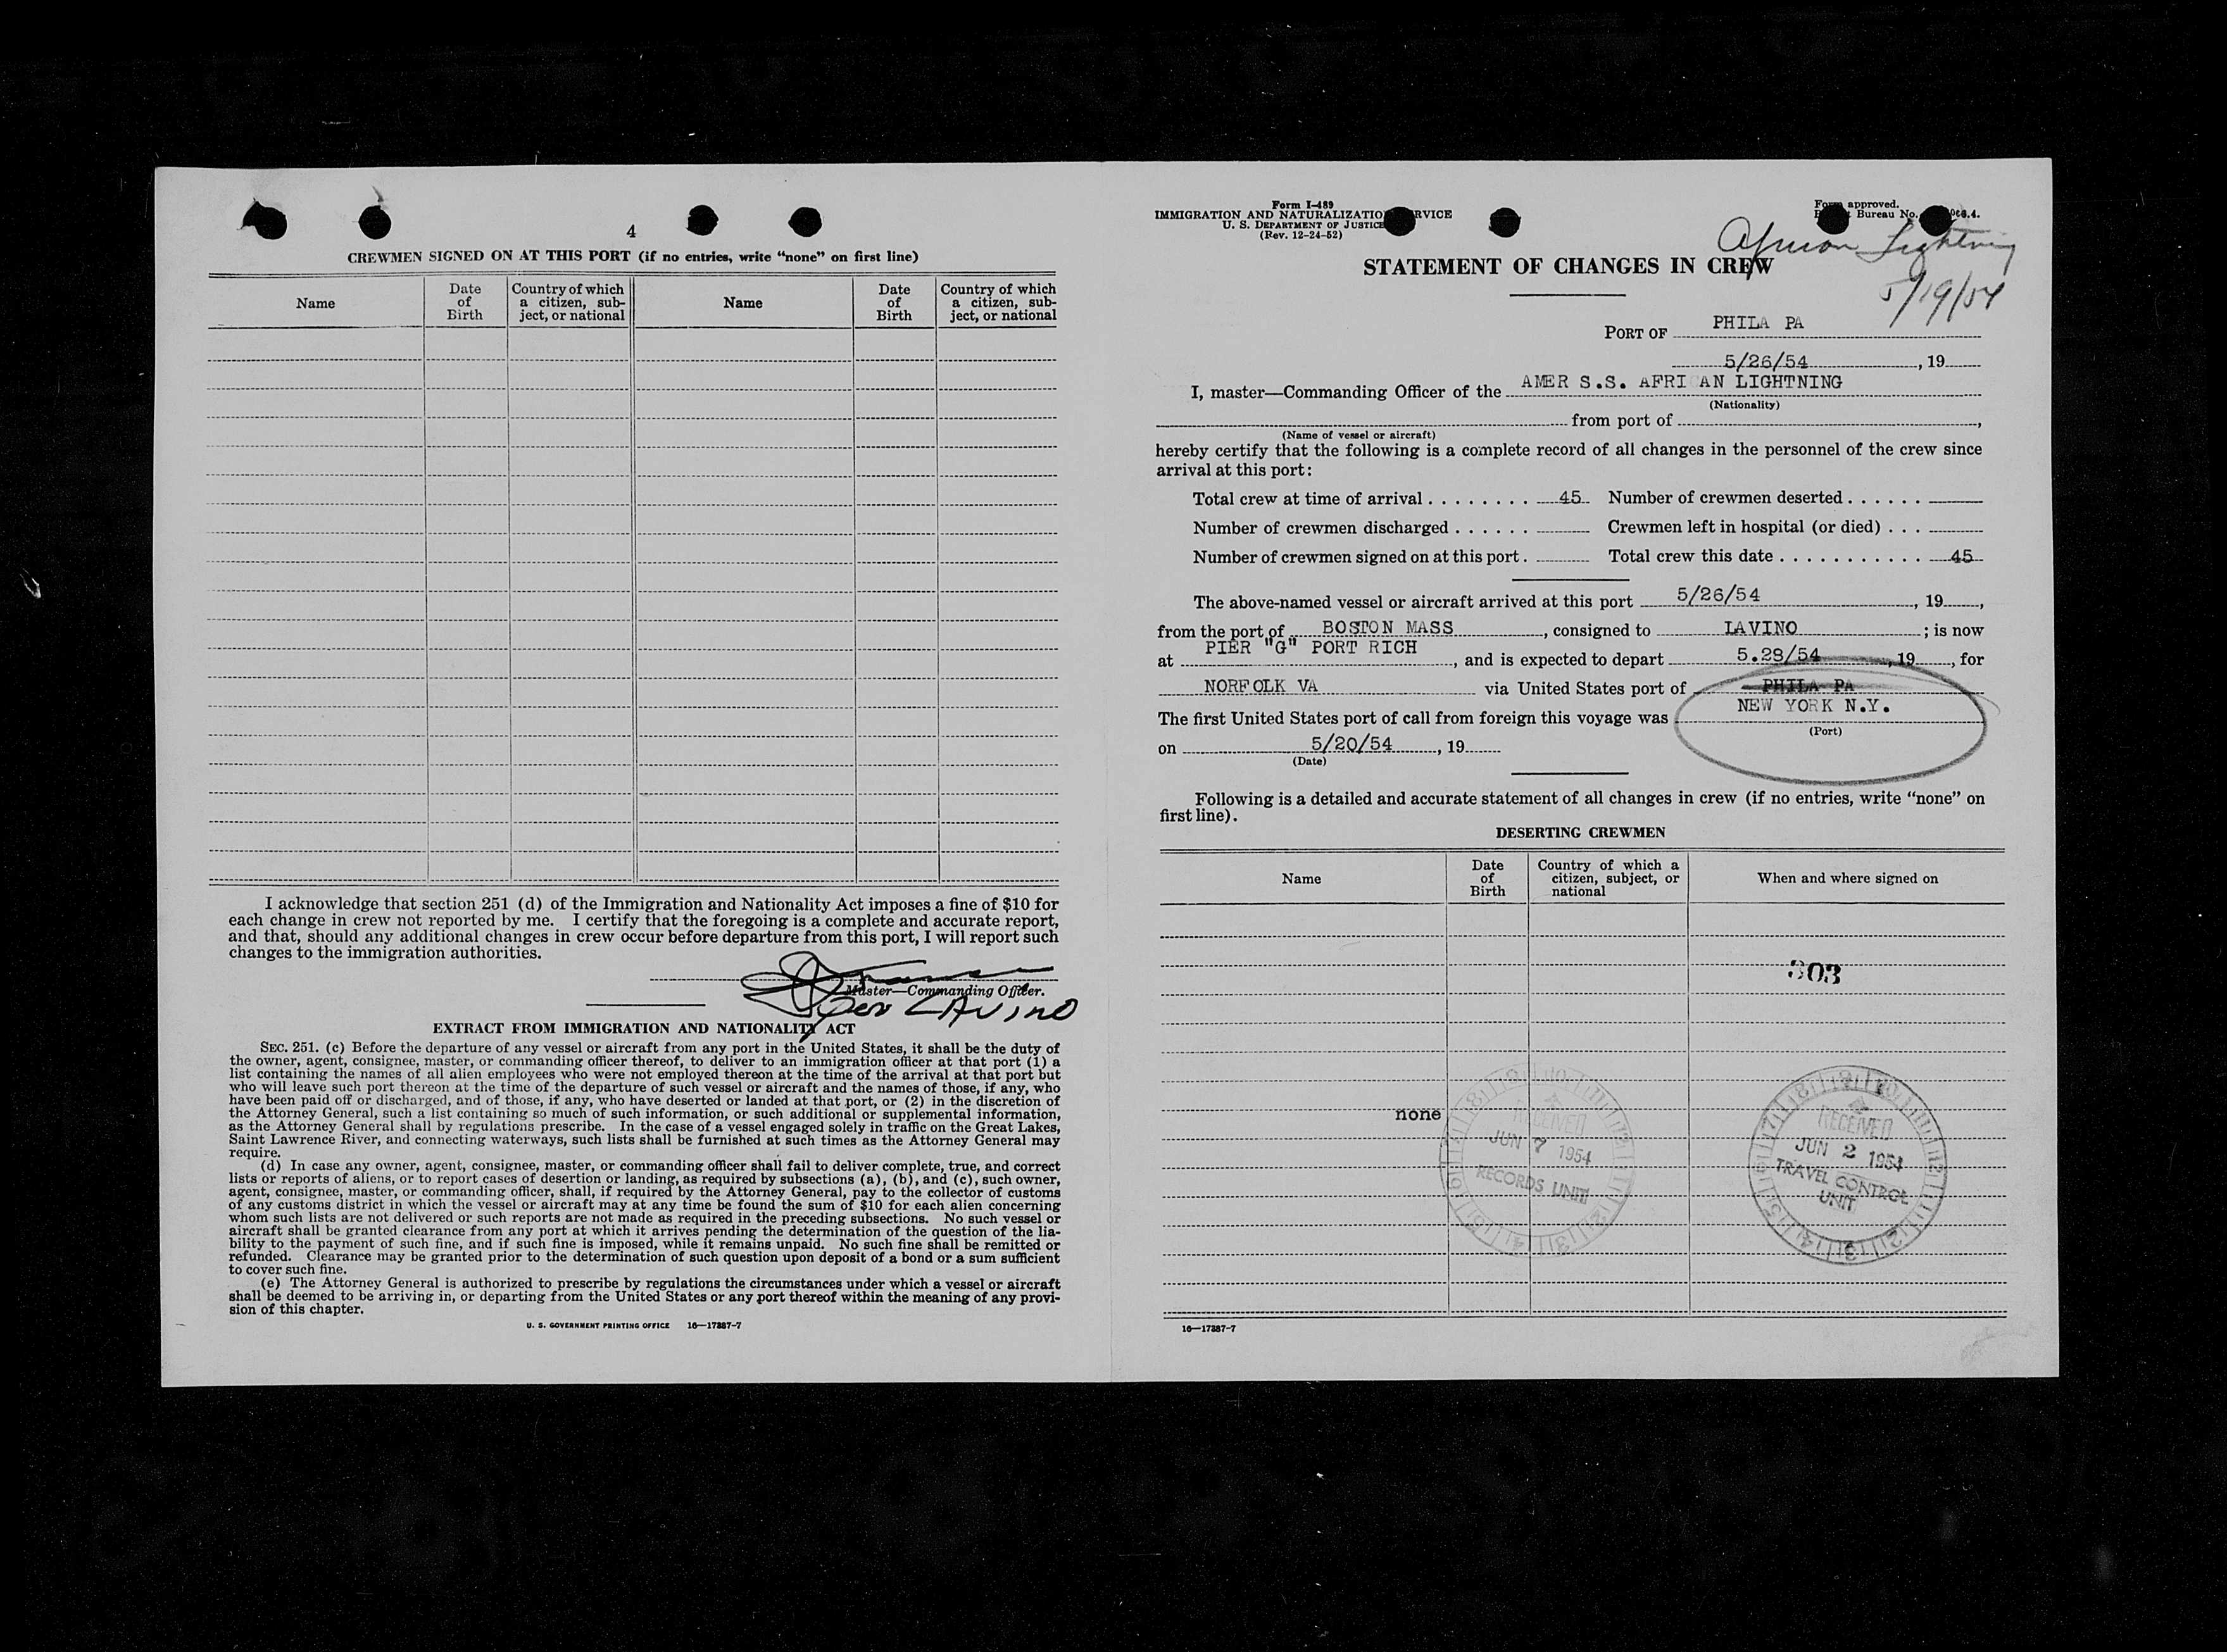 4
CREWMEN SIGNED ON AT THIS PORT (if no entries, write “none” on first line)
Name
Date of Birth
Country of which a citizen, sub-ject, or national
Name
Date of Birth
Country of which a citizen, sub-ject, or national
I acknowledge that section 251 (d) of the Immigration and Nationality Act imposes a fine of $10 for
each change in crew not reported by me. I certify that the foregoing is a complete and accurate report,
and that, should any additional changes in crew occur before departure from this port, I will report such
changes to the immigration authorities.
Master—Commanding Officer.
LAVINO
EXTRACT FROM IMMIGRATION AND NATIONALITY ACT
SEC. 251. (c) Before the departure of any vessel or aircraft from any port in the United States, it shall be the duty of
the owner, agent, consignee, master, or commanding officer thereof, to deliver to an immigration officer at that port (1) a
list containing the names of all alien employees who were not employed thereon at the time of the arrival at that port but
who will leave such port thereon at the time of the departure of such vessel or aircraft and the names of those, if any, who
have been paid off or discharged, and of those, if any, who have deserted or landed at that port, or (2) in the discretion of
the Attorney General, such a list containing so much of such information, or such additional or supplemental information,
as the Attorney General shall by regulations prescribe. In the case of a vessel engaged solely in traffic on the Great Lakes,
Saint Lawrence River, and connecting waterways, such lists shall be furnished at such times as the Attorney General may
require.
(d) In case any owner, agent, consignee, master, or commanding officer shall fail to deliver complete, true, and correct
lists or reports of aliens, or to report cases of desertion or landing, as required by subsections (a), (b), and (c), such owner,
agent, consignee, master, or commanding officer, shall, if required by the Attorney General, pay to the collector of customs
of any customs district in which the vessel or aircraft may at any time be found the sum of $10 for each alien concerning
whom such lists are not delivered or such reports are not made as required in the preceding subsections. No such vessel or
aircraft shall be granted clearance from any port at which it arrives pending the determination of the question of the lia-
bility to the payment of such fine, and if such fine is imposed, while it remains unpaid. No such fine shall be remitted or
refunded. Clearance may be granted prior to the determination of such question upon deposit of a bond or a sum sufficient
to cover such fine.
(e) The Attorney General is authorized to prescribe by regulations the circumstances under which a vessel or aircraft
shall be deemed to be arriving in, or departing from the United States or any port thereof within the meaning of any provi-
sion of this chapter.
U. S. GOVERNMENT PRINTING OFFICE 16—17887-7
Form I-489
IMMIGRATION AND NATURALIZATION SERVICE
U. S. DEPARTMENT OF JUSTICE
(Rev. 12-24-52)
Form approved.
Bureau No.
African Lightning
5/19/54
STATEMENT OF CHANGES IN CREW
PORT OF PHILA PA
5/26/54, 19
I, master—Commanding Officer of the AMER S.S. AFRI AN LIGHTNING
(Nationality)
from port of ,
(Name of vessel or aircraft)
hereby certify that the following is a complete record of all changes in the personnel of the crew since
arrival at this port:
Total crew at time of arrival 45 Number of crewmen deserted
Number of crewmen discharged Crewmen left in hospital (or died)
Number of crewmen signed on at this port Total crew this date 45
The above-named vessel or aircraft arrived at this port 5/26/54, 19 ,
from the port of BOSTON MASS, consigned to LAVINO; is now
at PIER "G" PORT RICH, and is expected to depart 5.28/54, 19 , for
NORFOLK VA via United States port of PHILA PA
The first United States port of call from foreign this voyage was NEW YORK N.Y.
(Port)
on 5/20/54, 19
(Date)
Following is a detailed and accurate statement of all changes in crew (if no entries, write “none” on
first line).
DESERTING CREWMEN
Name
Date of Birth
Country of which a citizen, subject, or national
When and where signed on
303
none
RECEIVED
JUN 7 1954
RECORDS UNIT
RECEIVED
JUN 2 1954
TRAVEL CONTROL
UNIT
16—17887-7